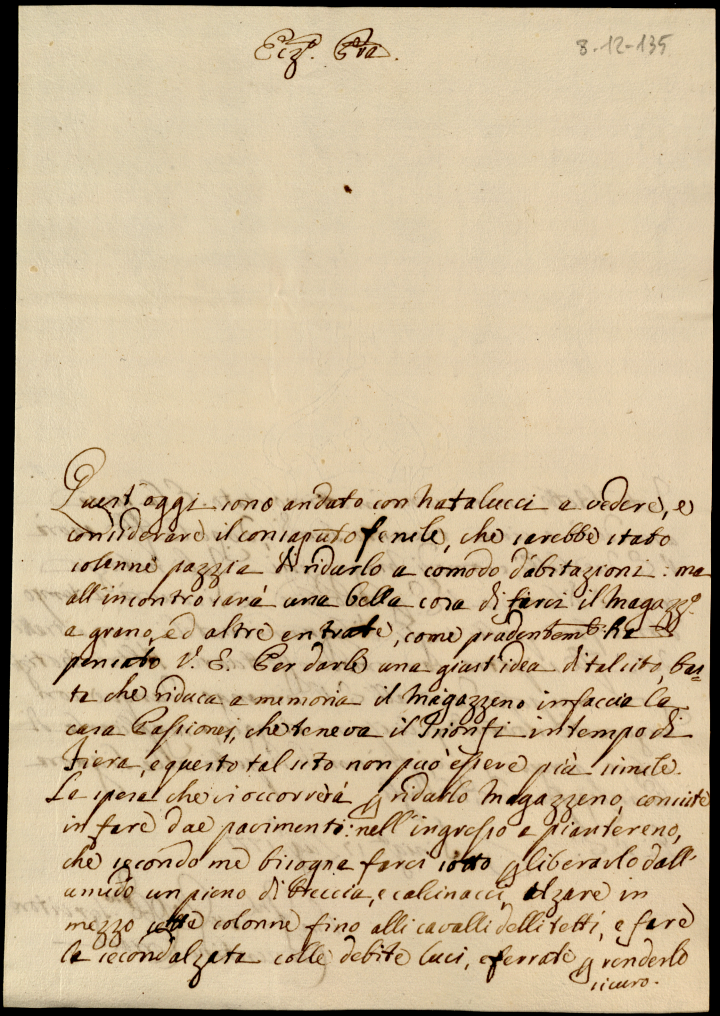 Ecz.ᵃ Pᵛᵃ.
8-12-135
Quest'oggi sono andato con Natalucci a vedere, e
considerare il consaputo fenile, che sarebbe stato
solenne pazzia di ridurlo a comodo d'abitazioni: ma
all'incontro sarà una bella cosa di farci il Magazz.º
a grano, ed altre entrate, come prudentemᵗᵉ ha
pensato V. E. Per darle una giust'idea di tal sito, bas=
ta che riduca a memoria il Magazzeno in faccia la
casa Passionei, che teneva il Trionfi in tempo di
Fiera, e questo tal sito non può essere più simile.
La spesa che vi occorrerà p ridurlo Magazzeno, consiste
in fare due pavimenti: nell'ingresso a pianterreno,
che secondo me bisogna farci sotto p liberarlo dall'
umido un pieno di breccia, e calcinacci, alzare in
mezzo colonne fino alli cavalli delli tetti, e fare
la second'alzata colle debite luci, e ferrate p renderlo
sicuro.